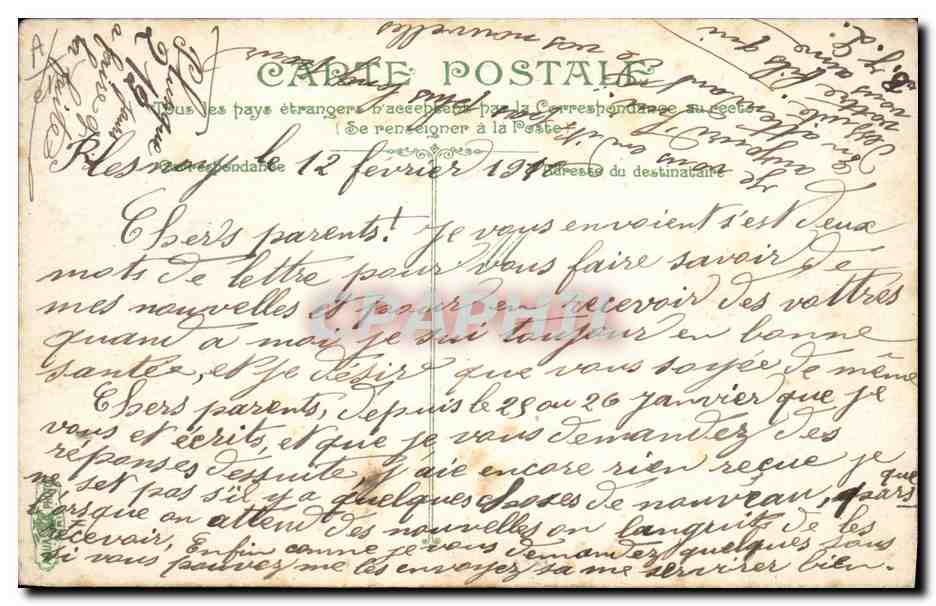 CARTE POSTALE
Tous les pays étrangers n'acceptent pas la Correspondance au recto
(Se renseigner à la Poste)
Correspondance
Adresse du destinataire
le 12 février 191
Chers parents! Je vous envoient s'est deux
mots de lettre pour vous faire savoir de
mes nouvelles et pour en recevoir des vottres
quand a moi je sui toujour en bonne
santée, et je désire que vous soyée de même
Chers parents, depuis le 25 ou 26 Janvier que je
vous et écrits, et que je vous demandez des
réponses dessuite j'aie encore rien reçue je
ne set pas s'il y a quelques choses de nouveau, pars que
lorsque on attend des nouvelles on languits de les
recevoir, Enfin comme je vous demandez quelques sous
si vous pouvez me les envoyez sa me servirer bien.
a faire
la
Je vous
en
votre fils
qui
vous aime
de vos nouvelles
CPAPHIL